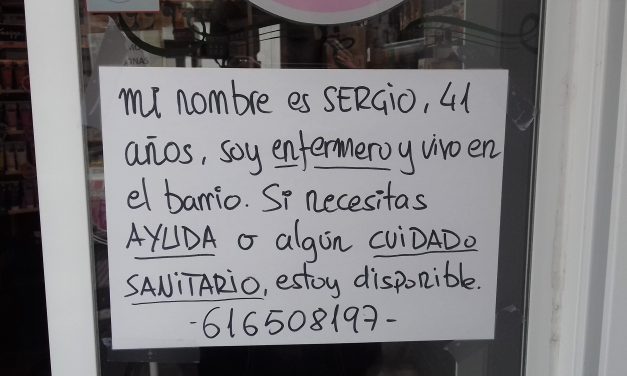 mi nombre es SERGIO, 41
años, soy enfermero y vivo en
el barrio. Si necesitas
AYUDA o algún CUIDADO
SANITARIO, estoy disponible.
-616508197-